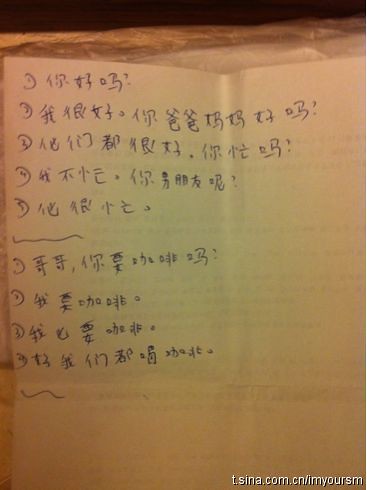 ① 你好吗?
② 我很好。你爸爸妈妈好吗?
③ 他们都很好,你忙吗?
④ 我不忙。你男朋友呢?
⑤ 他很忙。
① 哥哥,你要咖啡吗?
② 我要咖啡。
③ 我也要咖啡。
④ 好我们都喝咖啡。
t.sina.com.cn/imyoursm